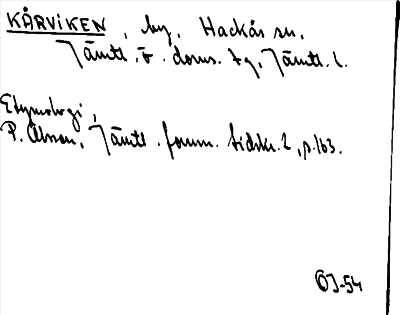 KÅRVIKEN, by, Hackås sn,
Jämtl. ö. doms. tg, Jämtl. l.
Etymologi,
P. Olsson, Jämtl. fornm. tidskr. 2, p. 163.
ÖJ-54